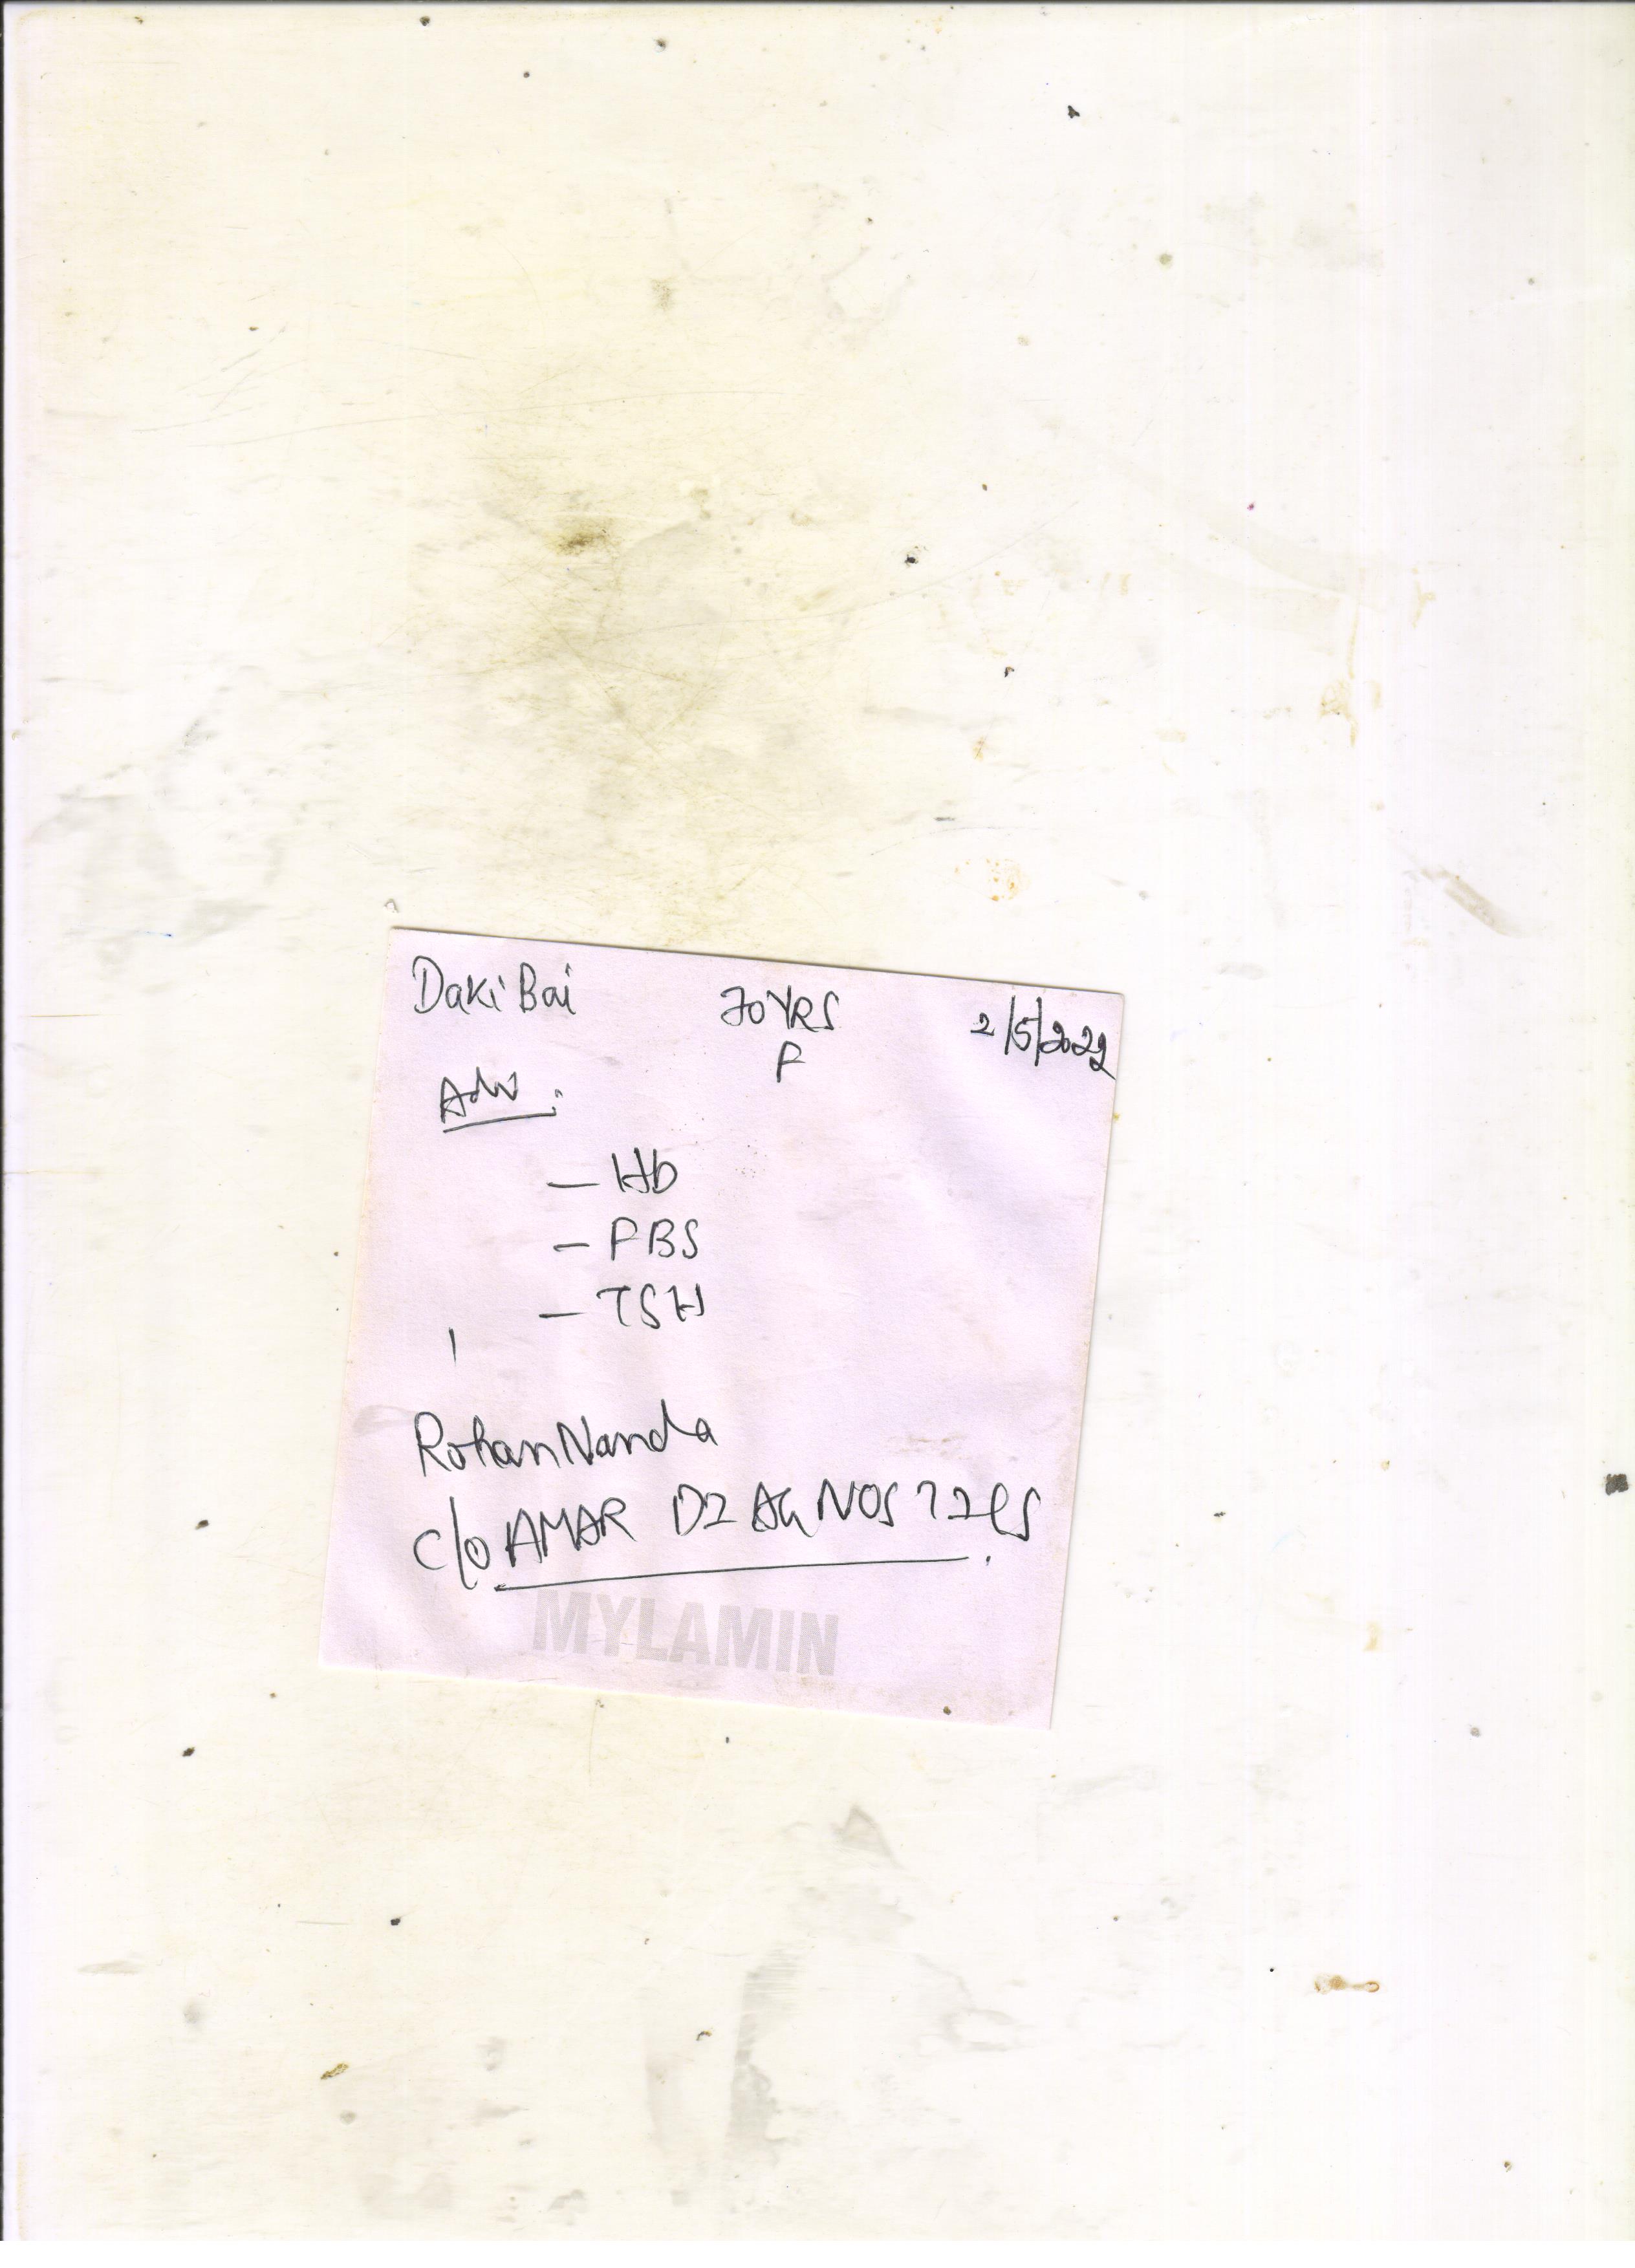 Daki Bai 70 YRS 2/5/2022
F
Adv :
- Hb
- FBS
- TSH
Rohan Nanda
c/o AMAR DIAGNOSTICS.
MYLAMIN